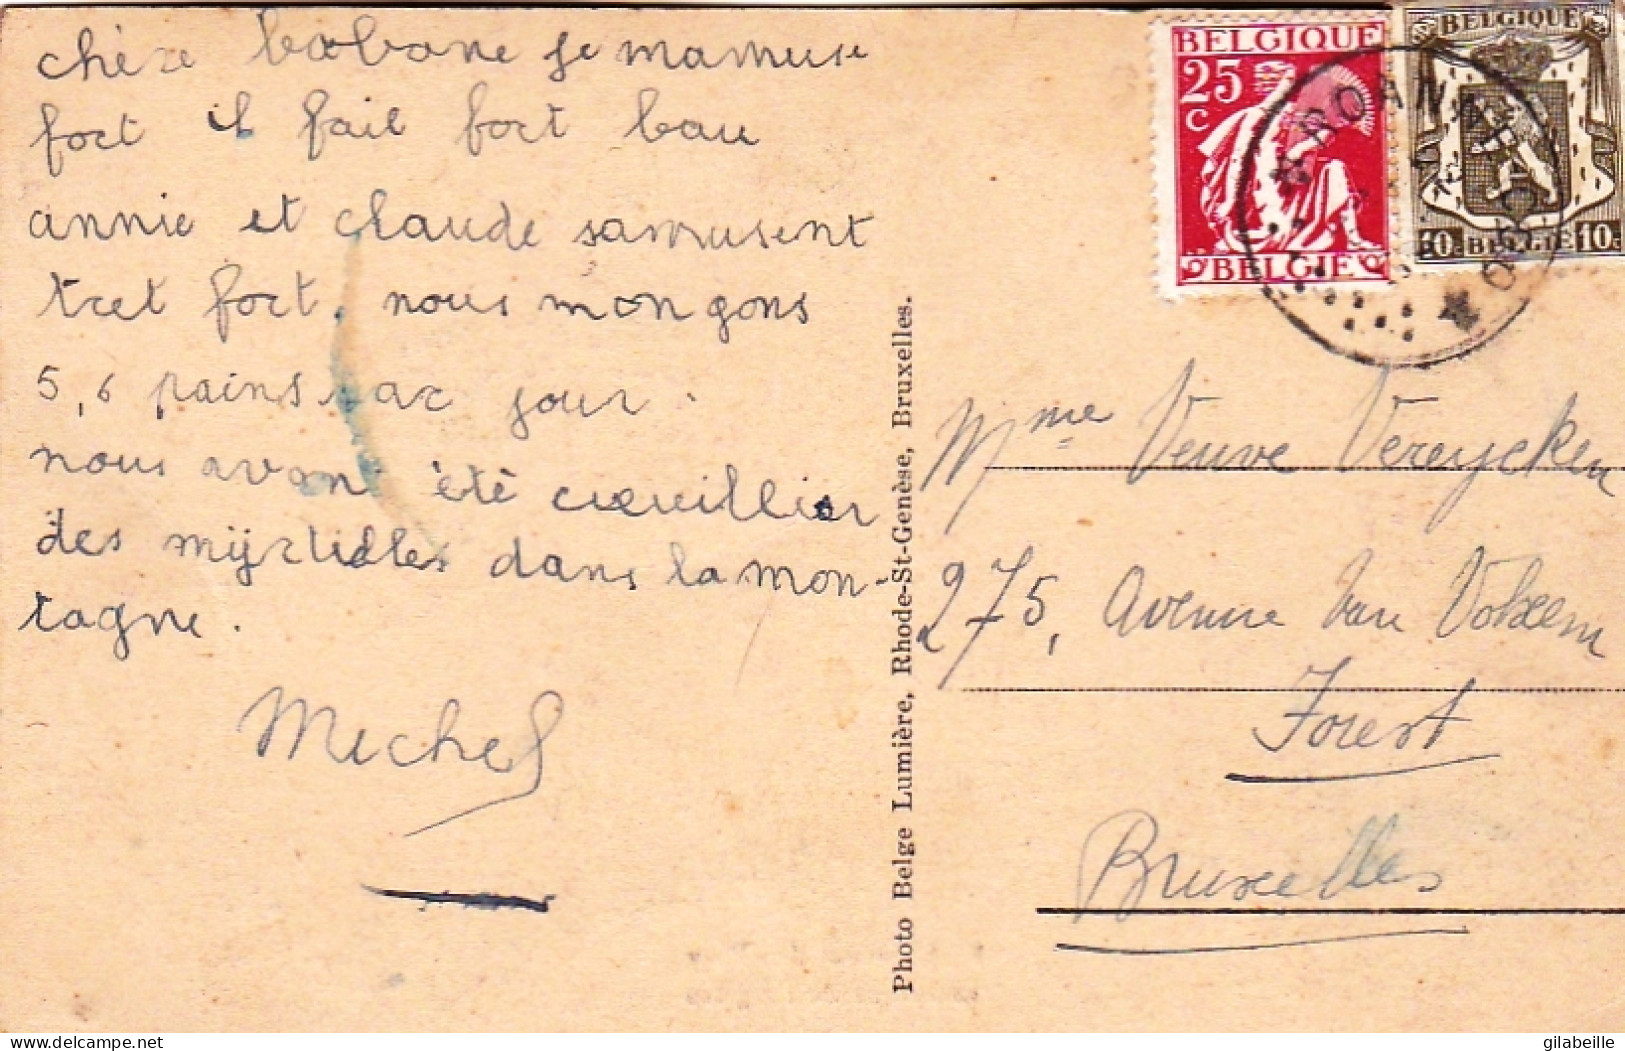 chère bobone je mamuse
fort il fait fort bau
annie et claude samusent
tret fort, nous mongons
5,6 pains par jour.
nous avont été cueillier
des mijrtilles dans la mon-
tagne.
Michel
Photo Belge Lumière, Rhode-St-Genèse, Bruxelles.
BELGIQUE
25
C
BELGIE
BELGIQUE
10c
BELGIE 10c
Mme Veuve Vereycken
275, Avenue Van Volxem
Forest
Bruxelles
delcampe.net
gilabeille